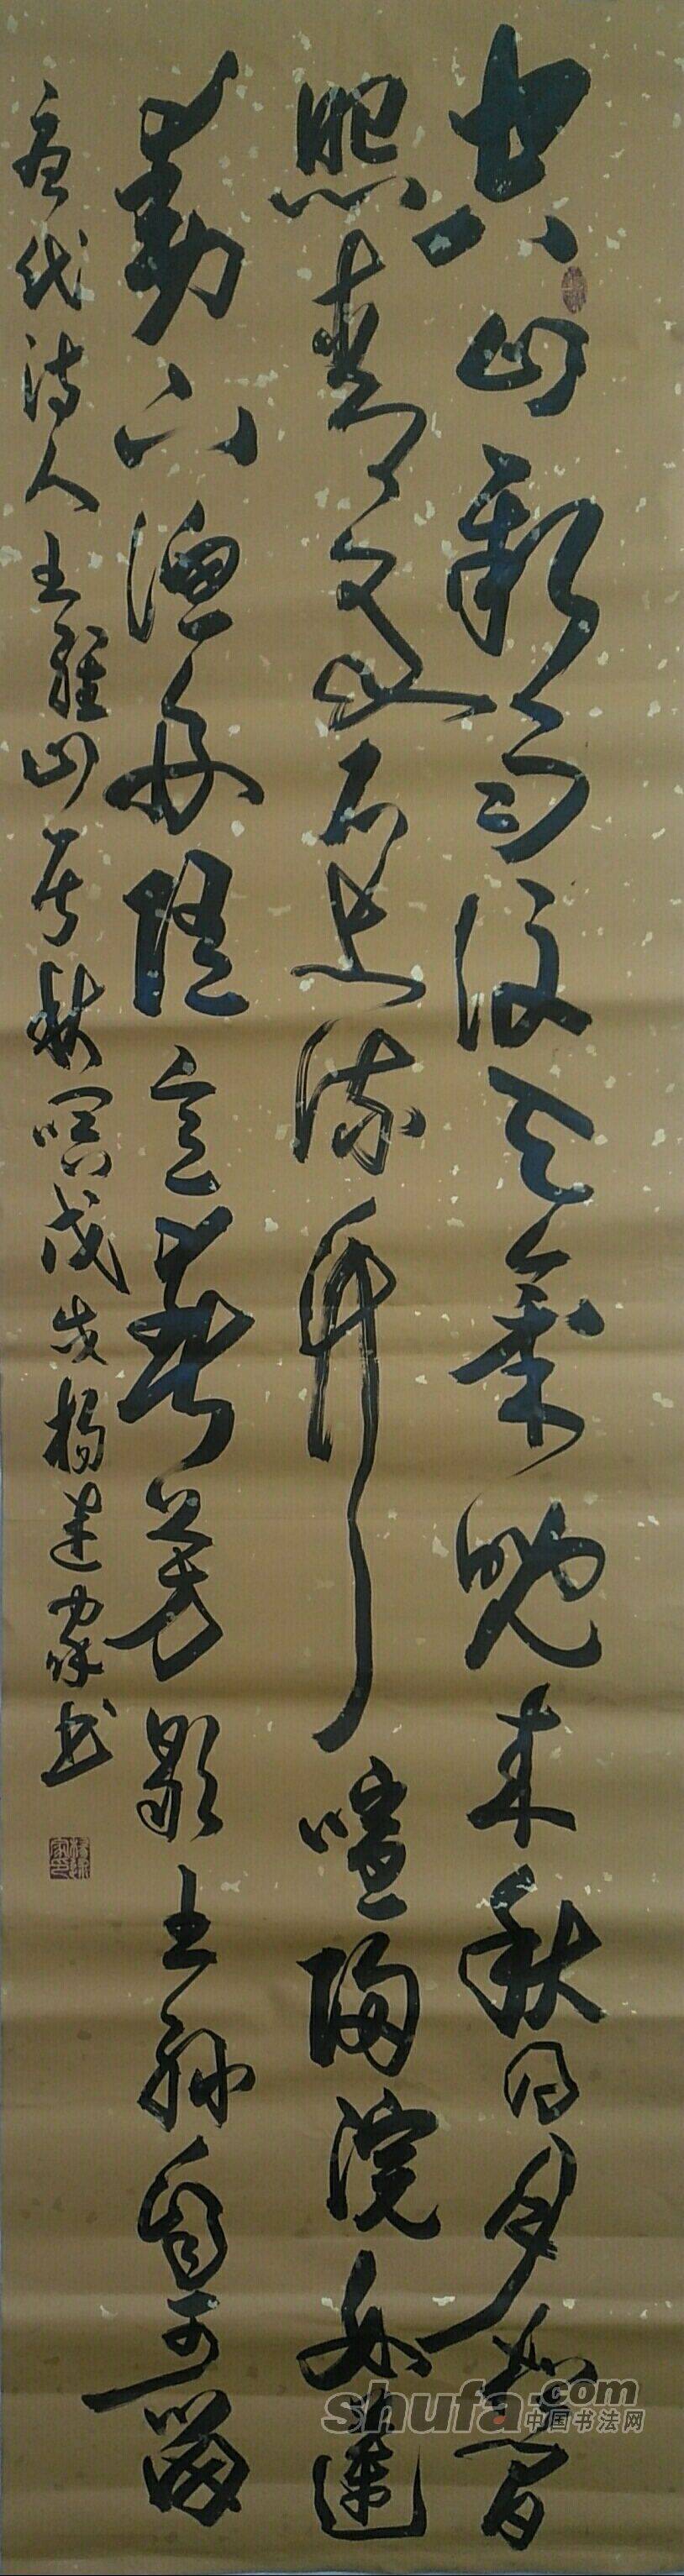 空山新雨後天氣晚来秋明月松間
照清泉石上流竹喧歸浣女蓮
動下漁舟隨意春芳歇王孫自可留
唐代诗人王維山居秋暝戊戌楊建家书
shufa.com
中国书法网